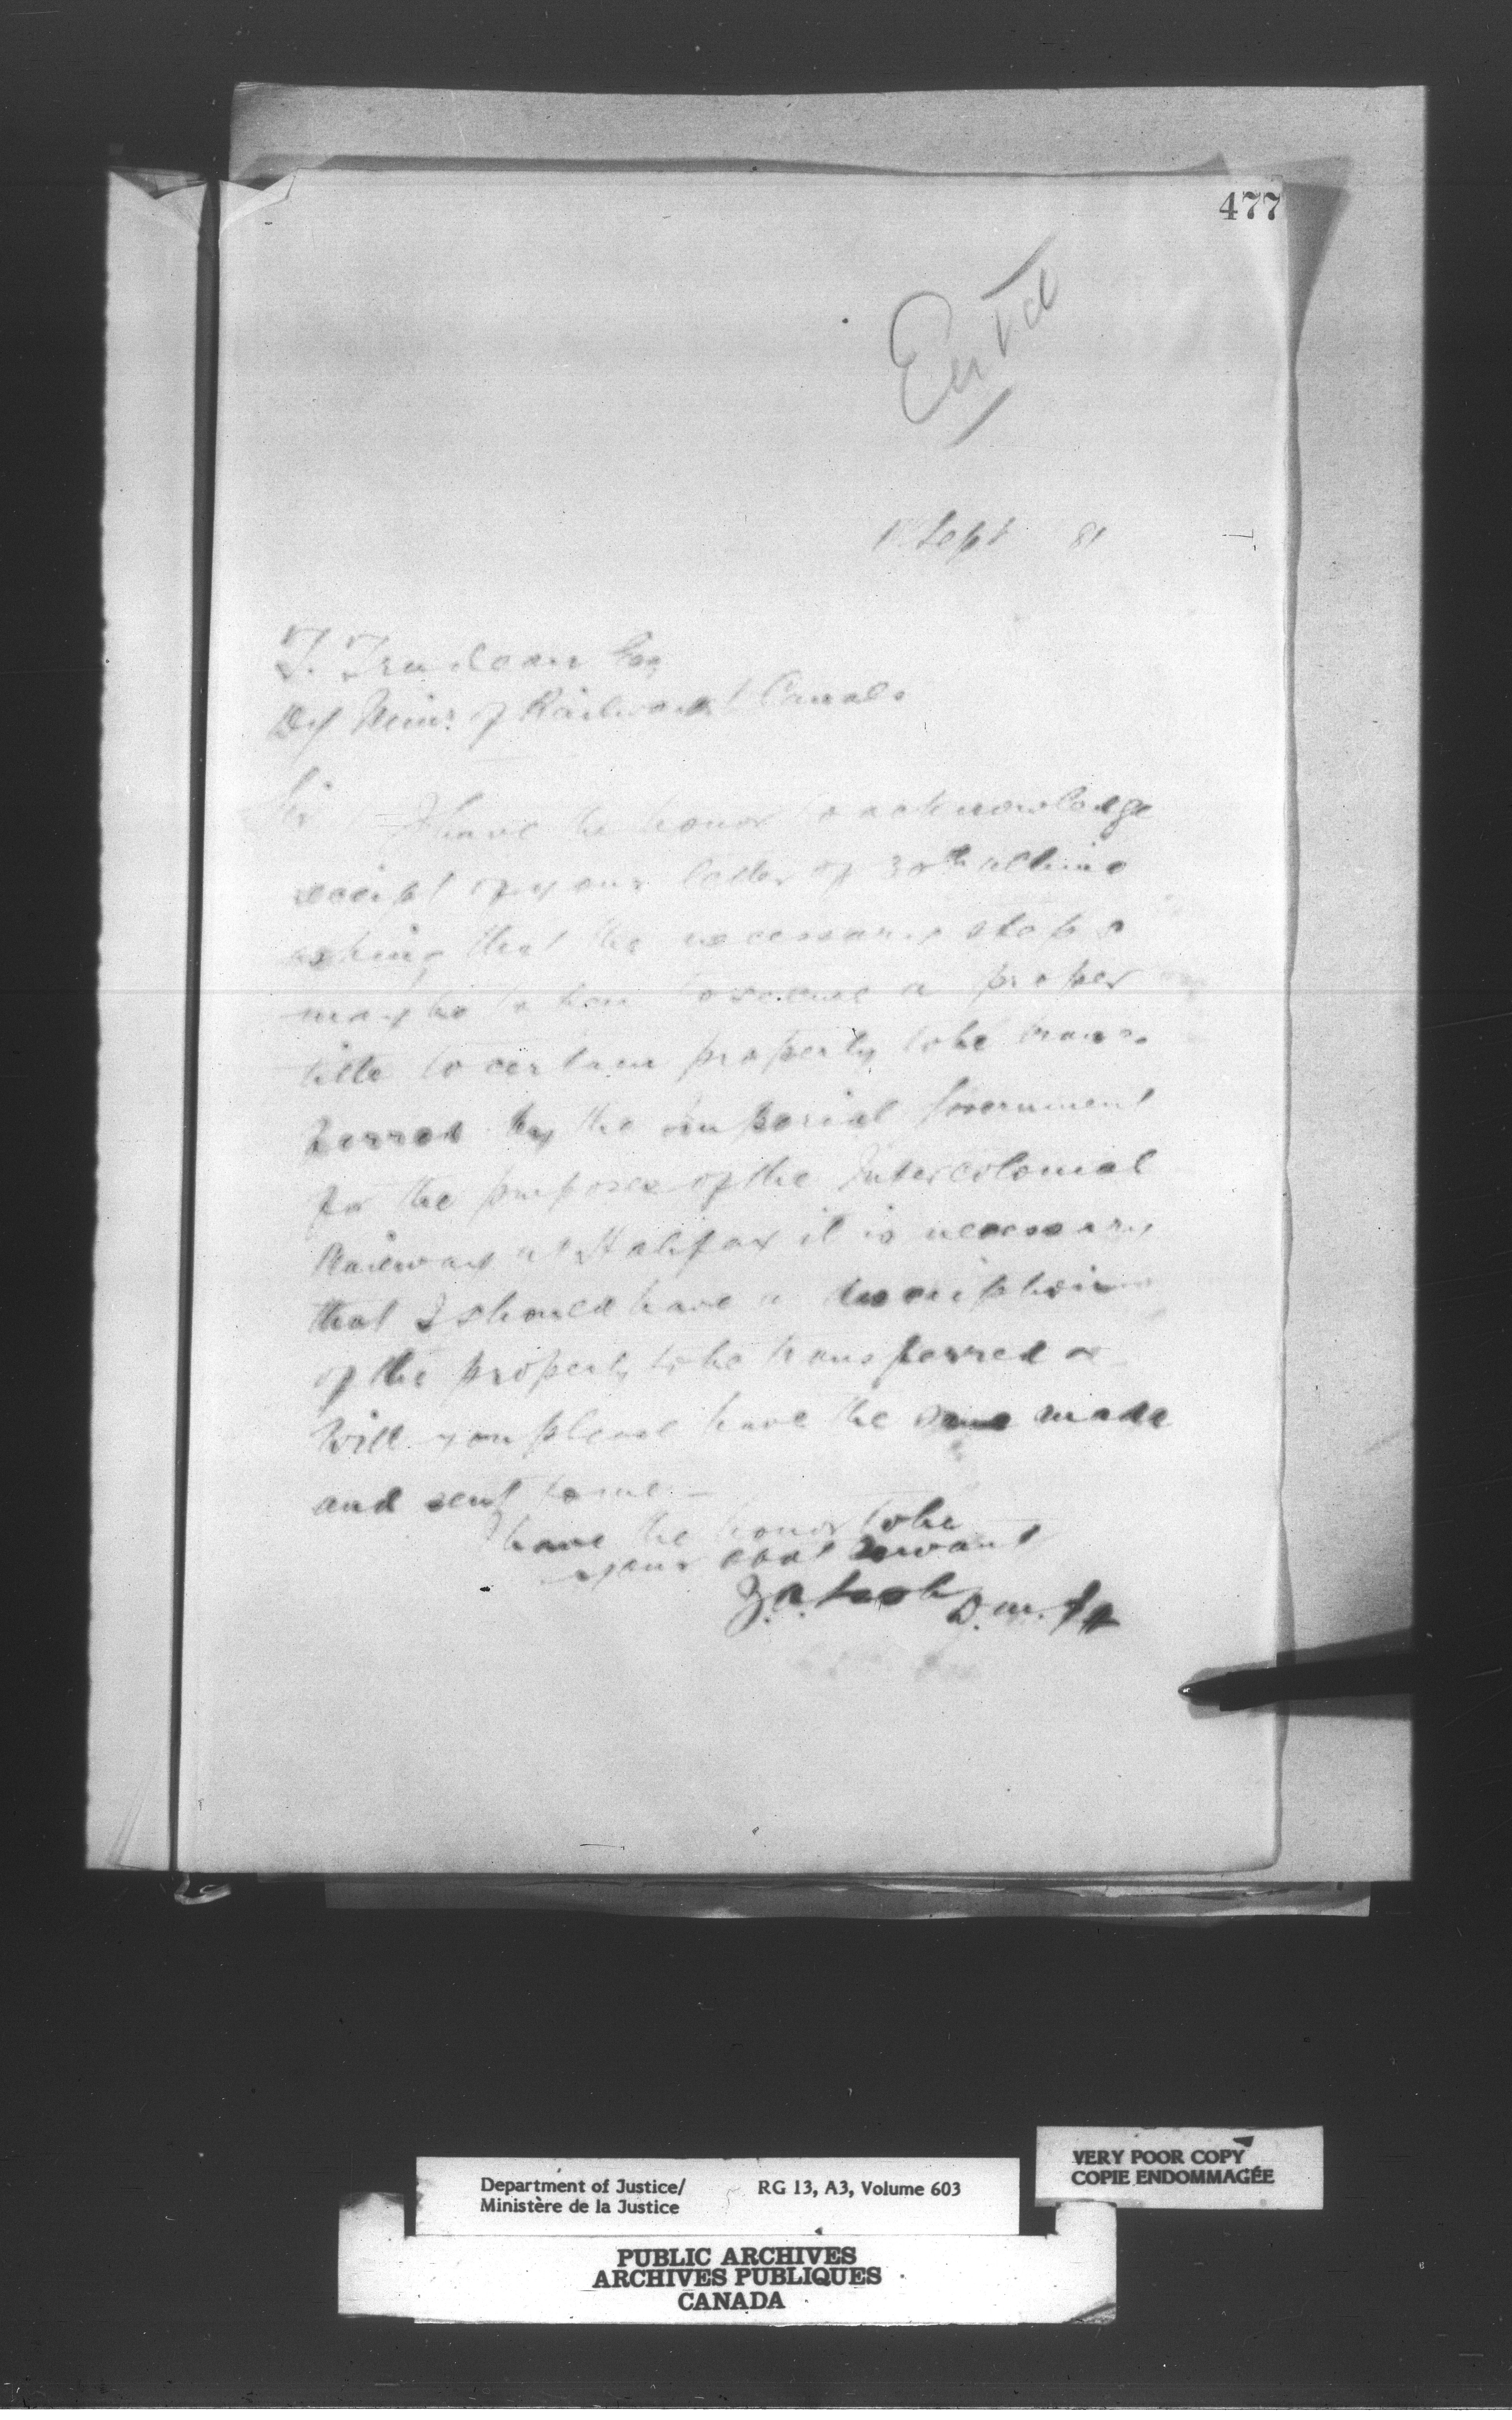 477
Entd
1 Sept 81
T. Trudeau Esq
Dy Minr. of Railways & Canals
Sir
I have the honor to acknowledge
receipt of your letter of 30th ultimo
asking that the necessary steps
may be taken to secure a proper
title to certain property to be trans-
ferred by the Imperial Government
for the purposes of the Intercolonial
Railway at Halifax it is necessary
that I should have a description
of the property to be transferred &
Will you please have the same made
and sent to me –
I have the honor to be
your obdt servant
Z.A. Lash D.M.J.
Department of Justice/ RG 13, A3, Volume 603
Ministère de la Justice
VERY POOR COPY
COPIE ENDOMMAGÉE
PUBLIC ARCHIVES
ARCHIVES PUBLIQUES
CANADA